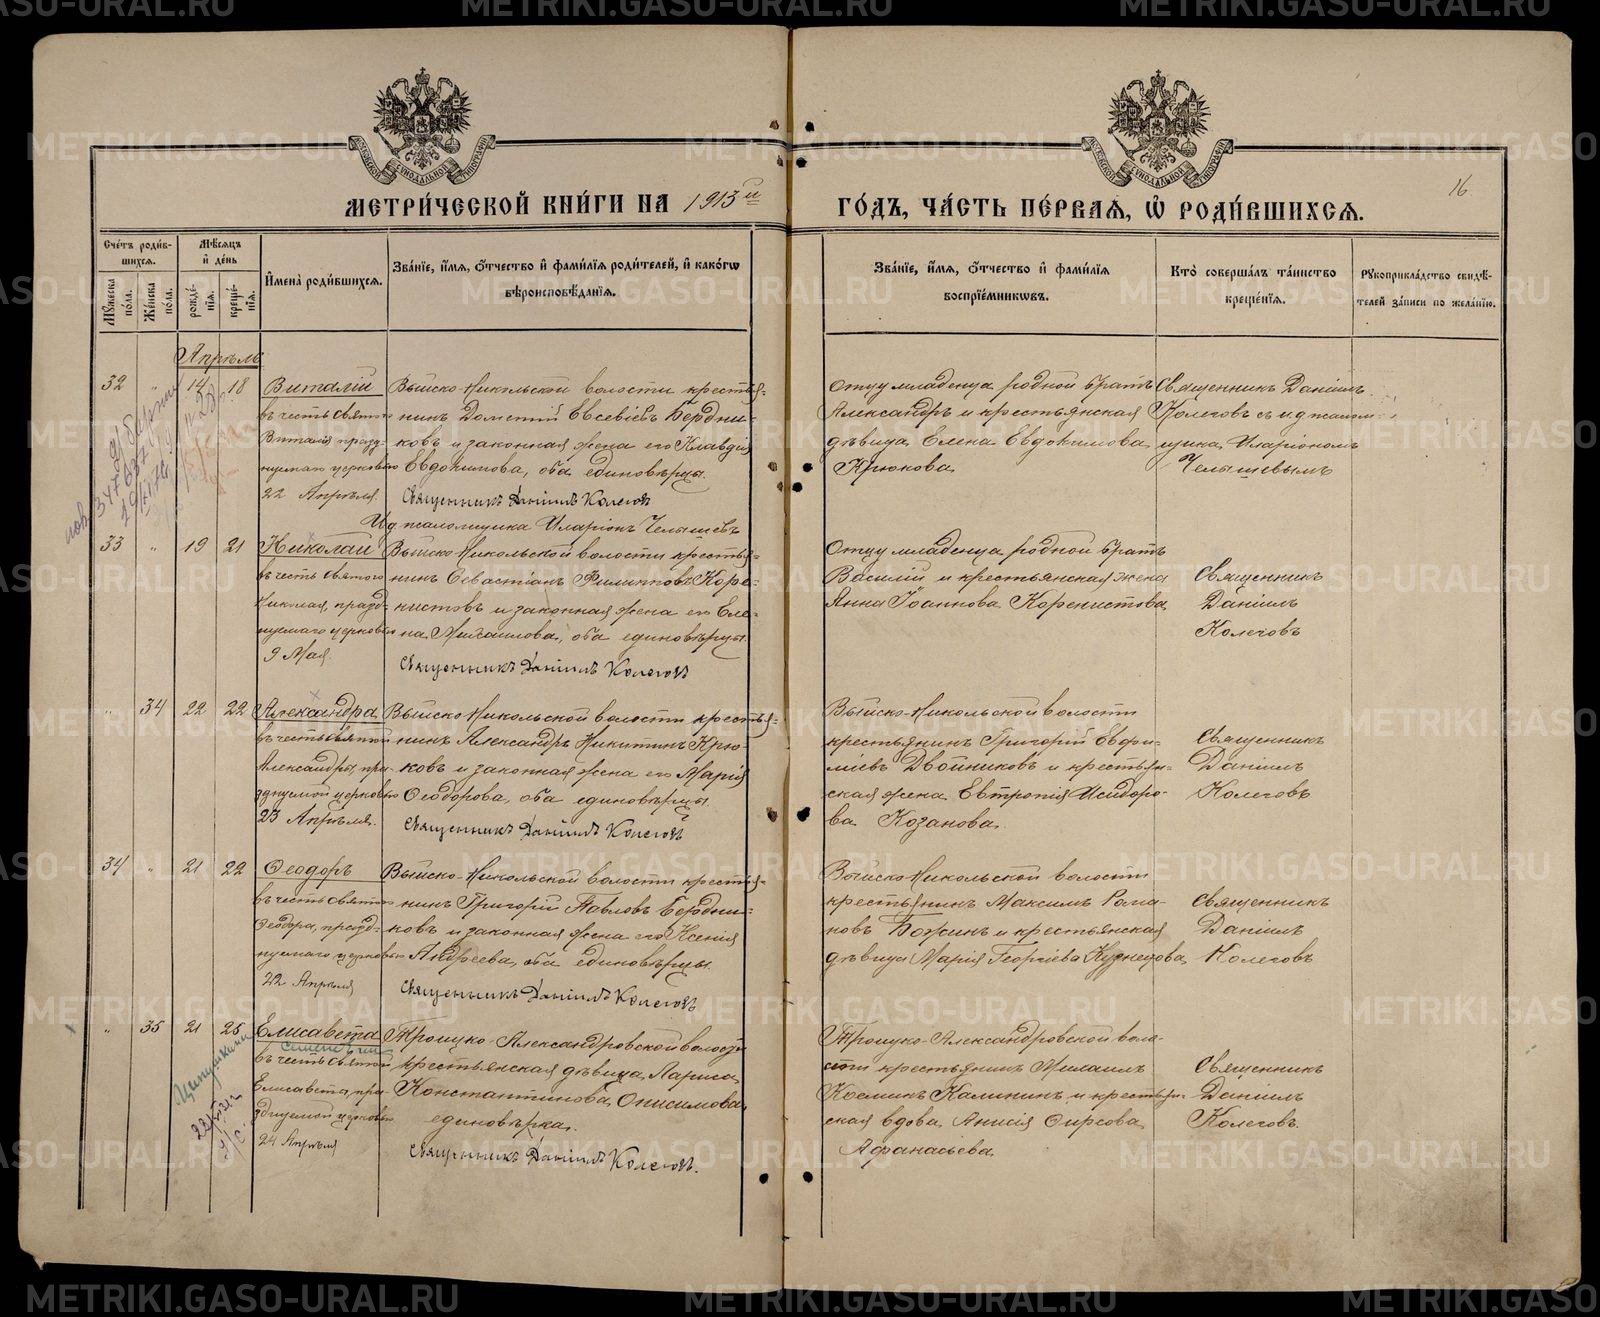 МОСКОВСКОЙ СѴНОДАЛЬНОЙ ТИПОГРАФІИ
МОСКОВСКОЙ СѴНОДАЛЬНОЙ ТИПОГРАФІИ
16
МЕТРИ́ЧЕСКОЙ КНИ́ГИ НА 1913й
ГО́ДЪ, ЧА́СТЬ ПЕ́РВАѦ, Ѡ҆ РОДИ́ВШИХСѦ.
Сче́тъ роди́в-
шихсѧ.
Мꙋ́жеска по́ла.
Же́нска по́ла.
Мѣ́сѧцъ
и҆ де́нь
рожде́-
нїѧ.
креще́-
нїѧ.
И҆мена̀ роди́вшихсѧ.
Зва́нїе, и҆́мѧ, ѻ҆́тчество и҆ фами́лїѧ роди́телей, и҆ како́гѡ
вѣроисповѣ́данїѧ.
Зва́нїе, и҆́мѧ, ѻ҆́тчество и҆ фами́лїѧ
воспрїе́мникѡвъ.
Кто̀ соверша́лъ та́инство
креще́нїѧ.
Рꙋкоприкла́дство свидѣ́-
телей за́писи по жела́нїю.
Апрѣль
32 „ 14 18
Виталій
въ честь свято
Виталія празд-
нуемаго церковію
22 Апрѣля
Выйско-Никольской волости крестья-
нинъ Дометій Евсевіевъ Бердни-
ковъ и законная жена его Клавдія
Евдокимова, оба единовѣрцы.
Священникъ Даніилъ Колеговъ
И д псаломщика Иларіонъ Челышевъ
Отцу младенца родной братъ
Александръ и крестьянская
дѣвица Елена Евдокимова
Крюкова
Священникъ Даніилъ
Колеговъ съ и д псалом-
щика Иларіономъ
Челышевымъ
33 „ 19 21
Николай
въ честь святого
Николая, празд-
нуемаго церковію
9 Мая.
Выйско-Никольской волости крестья-
нинъ Севастіанъ Филипповъ Коре-
нистовъ и законная жена его Еле-
на Михаилова, оба единовѣрцы.
Священникъ Даніилъ Колеговъ
Отцу младенца родной братъ
Василій и крестьянская жена
Анна Іоаннова Коренистова
Священникъ
Даніилъ
Колеговъ
„ 34 22 22
Александра
въ честь святой
Александры, пра-
зднуемой церковію
23 Апрѣля.
Выйско-Никольской волости крестья-
нинъ Александръ Никитинъ Крю-
ковъ и законная жена его Марія
Ѳеодорова, оба единовѣрцы.
Священникъ Даніилъ Колеговъ
Выйско-Никольской волости
крестьянинъ Григорій Евфи-
міевъ Двойниковъ и крестьян-
ская жена Евтропія Исидоро-
ва Козанова.
Священникъ
Даніилъ
Колеговъ
34 „ 21 22
Ѳеодоръ
въ честь святого
Ѳеодора, празд-
нуемаго церковію
22 Апрѣля
Выйско-Никольской волости крестья-
нинъ Григорій Павловъ Бердни-
ковъ и законная жена его Ксенія
Андреева, оба единовѣрцы.
Священникъ Даніилъ Колеговъ
Выйско-Никольской волости
крестьянинъ Максимъ Рома-
новъ Божинъ и крестьянская
дѣвица Марія Георгіева Кузнецова
Священникъ
Даніилъ
Колеговъ
„ 35 21 25
Елисавета
Семеновна
въ честь святой
Елисаветы, пра-
зднуемой церковію
24 Апрѣля
Троицко-Александровской волости
крестьянская дѣвица Лариса
Константинова Онисимова,
единовѣрка.
Священникъ Даніилъ Колеговъ.
Троицко-Александровской воло-
сти крестьянинъ Михаилъ
Космин Калининъ и крестьян-
ская вдова Анисія Ѳирсова
Афанасьева.
Священникъ
Даніилъ
Колеговъ.
METRIKI.GASO-URAL.RU